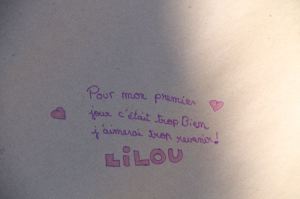 Pour mon premier
jour c'était trop Bien
j'aimerai trop revenir!
LiLOU